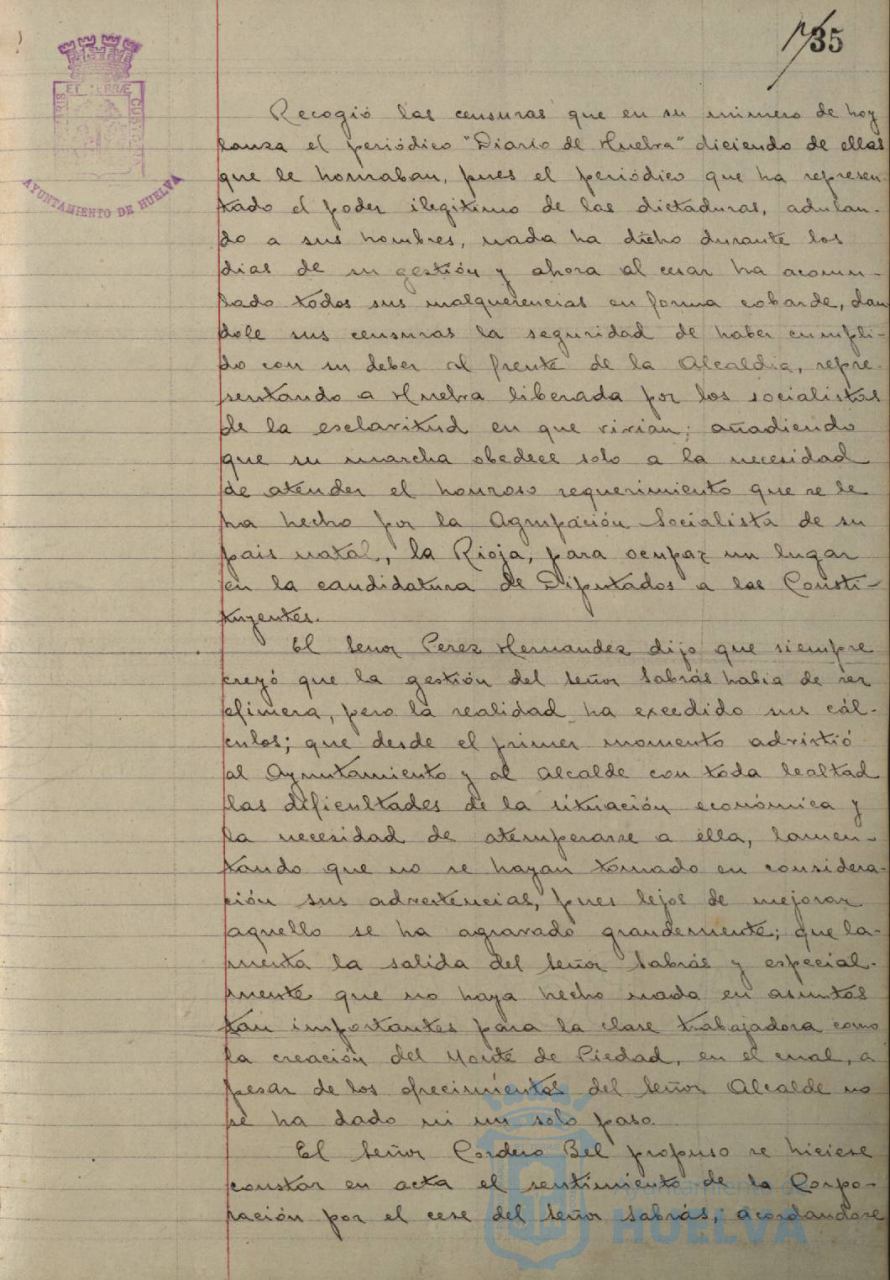 17/35
ET TERRÆ
AYUNTAMIENTO DE HUELVA
Recogió las censuras que en su número de hoy
lanza el periódico "Diario de Huelva" diciendo de ellas
que le honraban, pues el periódico que ha represen-
tado el poder ilegitimo de las dictaduras, adulan-
do a sus hombres, nada ha dicho durante los
dias de su gestión y ahora al cesar ha acomu-
lado todos sus malquerencias en forma cobarde, dan
dole sus censuras la seguridad de haber cumpli-
do con su deber al frente de la Alcaldia, repre-
sentando a Huelva liberada por los socialistas
de la esclavitud en que vivian; añadiendo
que su marcha obedece solo a la necesidad
de atender el honroso requerimiento que se le
ha hecho por la Agrupación Socialista de su
pais natal, la Rioja, para ocupar un lugar
en la candidatura de Diputados a las Consti-
tuyentes.
El Señor Perez Hernandez dijo que siempre
creyó que la gestión del Señor Sabrás habia de ser
efimera, pero la realidad ha excedido sus cál-
culos; que desde el primer momento advirtió
al Ayuntamiento y al Alcalde con toda lealtad
las dificultades de la situación económica y
la necesidad de atemperarse a ella, lamen-
tando que no se hayan tomado en considera-
ción sus advertencias, pues lejos de mejorar
aquello se ha agravado grandemente; que la-
menta la salida del Señor Sabrás y especial-
mente que no haya hecho nada en asuntos
tan importantes para la clase trabajadora como
la creación del Monte de Piedad, en el cual, a
pesar de los ofrecimientos del Señor Alcalde no
se ha dado ni un solo paso.
El Señor Cordero Bel propuso se hiciese
constar en acta el sentimiento de la Corpo-
ración por el cese del Señor Sabrás, acordandose
Ayuntamiento de
HUELVA